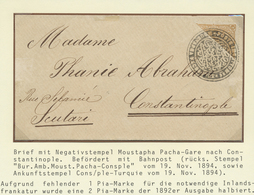 Madame
Phanie Abraham
Constantinople
Scutari
Brief mit Negativstempel Moustapha Pacha-Gare nach Con-
stantinopel. Befördert mit Bahnpost (rücks. Stempel
"Bur.Amb.Moust.Pacha-Consple" vom 19. Nov. 1894, sowie
Ankunftstempel Cons/ple-Turquie vom 19. Nov. 1894).
Aufgrund fehlender 1 Pia-Marke für die notwendige Inlands-
frankatur wurde eine 2 Pia-Marke der 1892er Ausgabe halbiert.